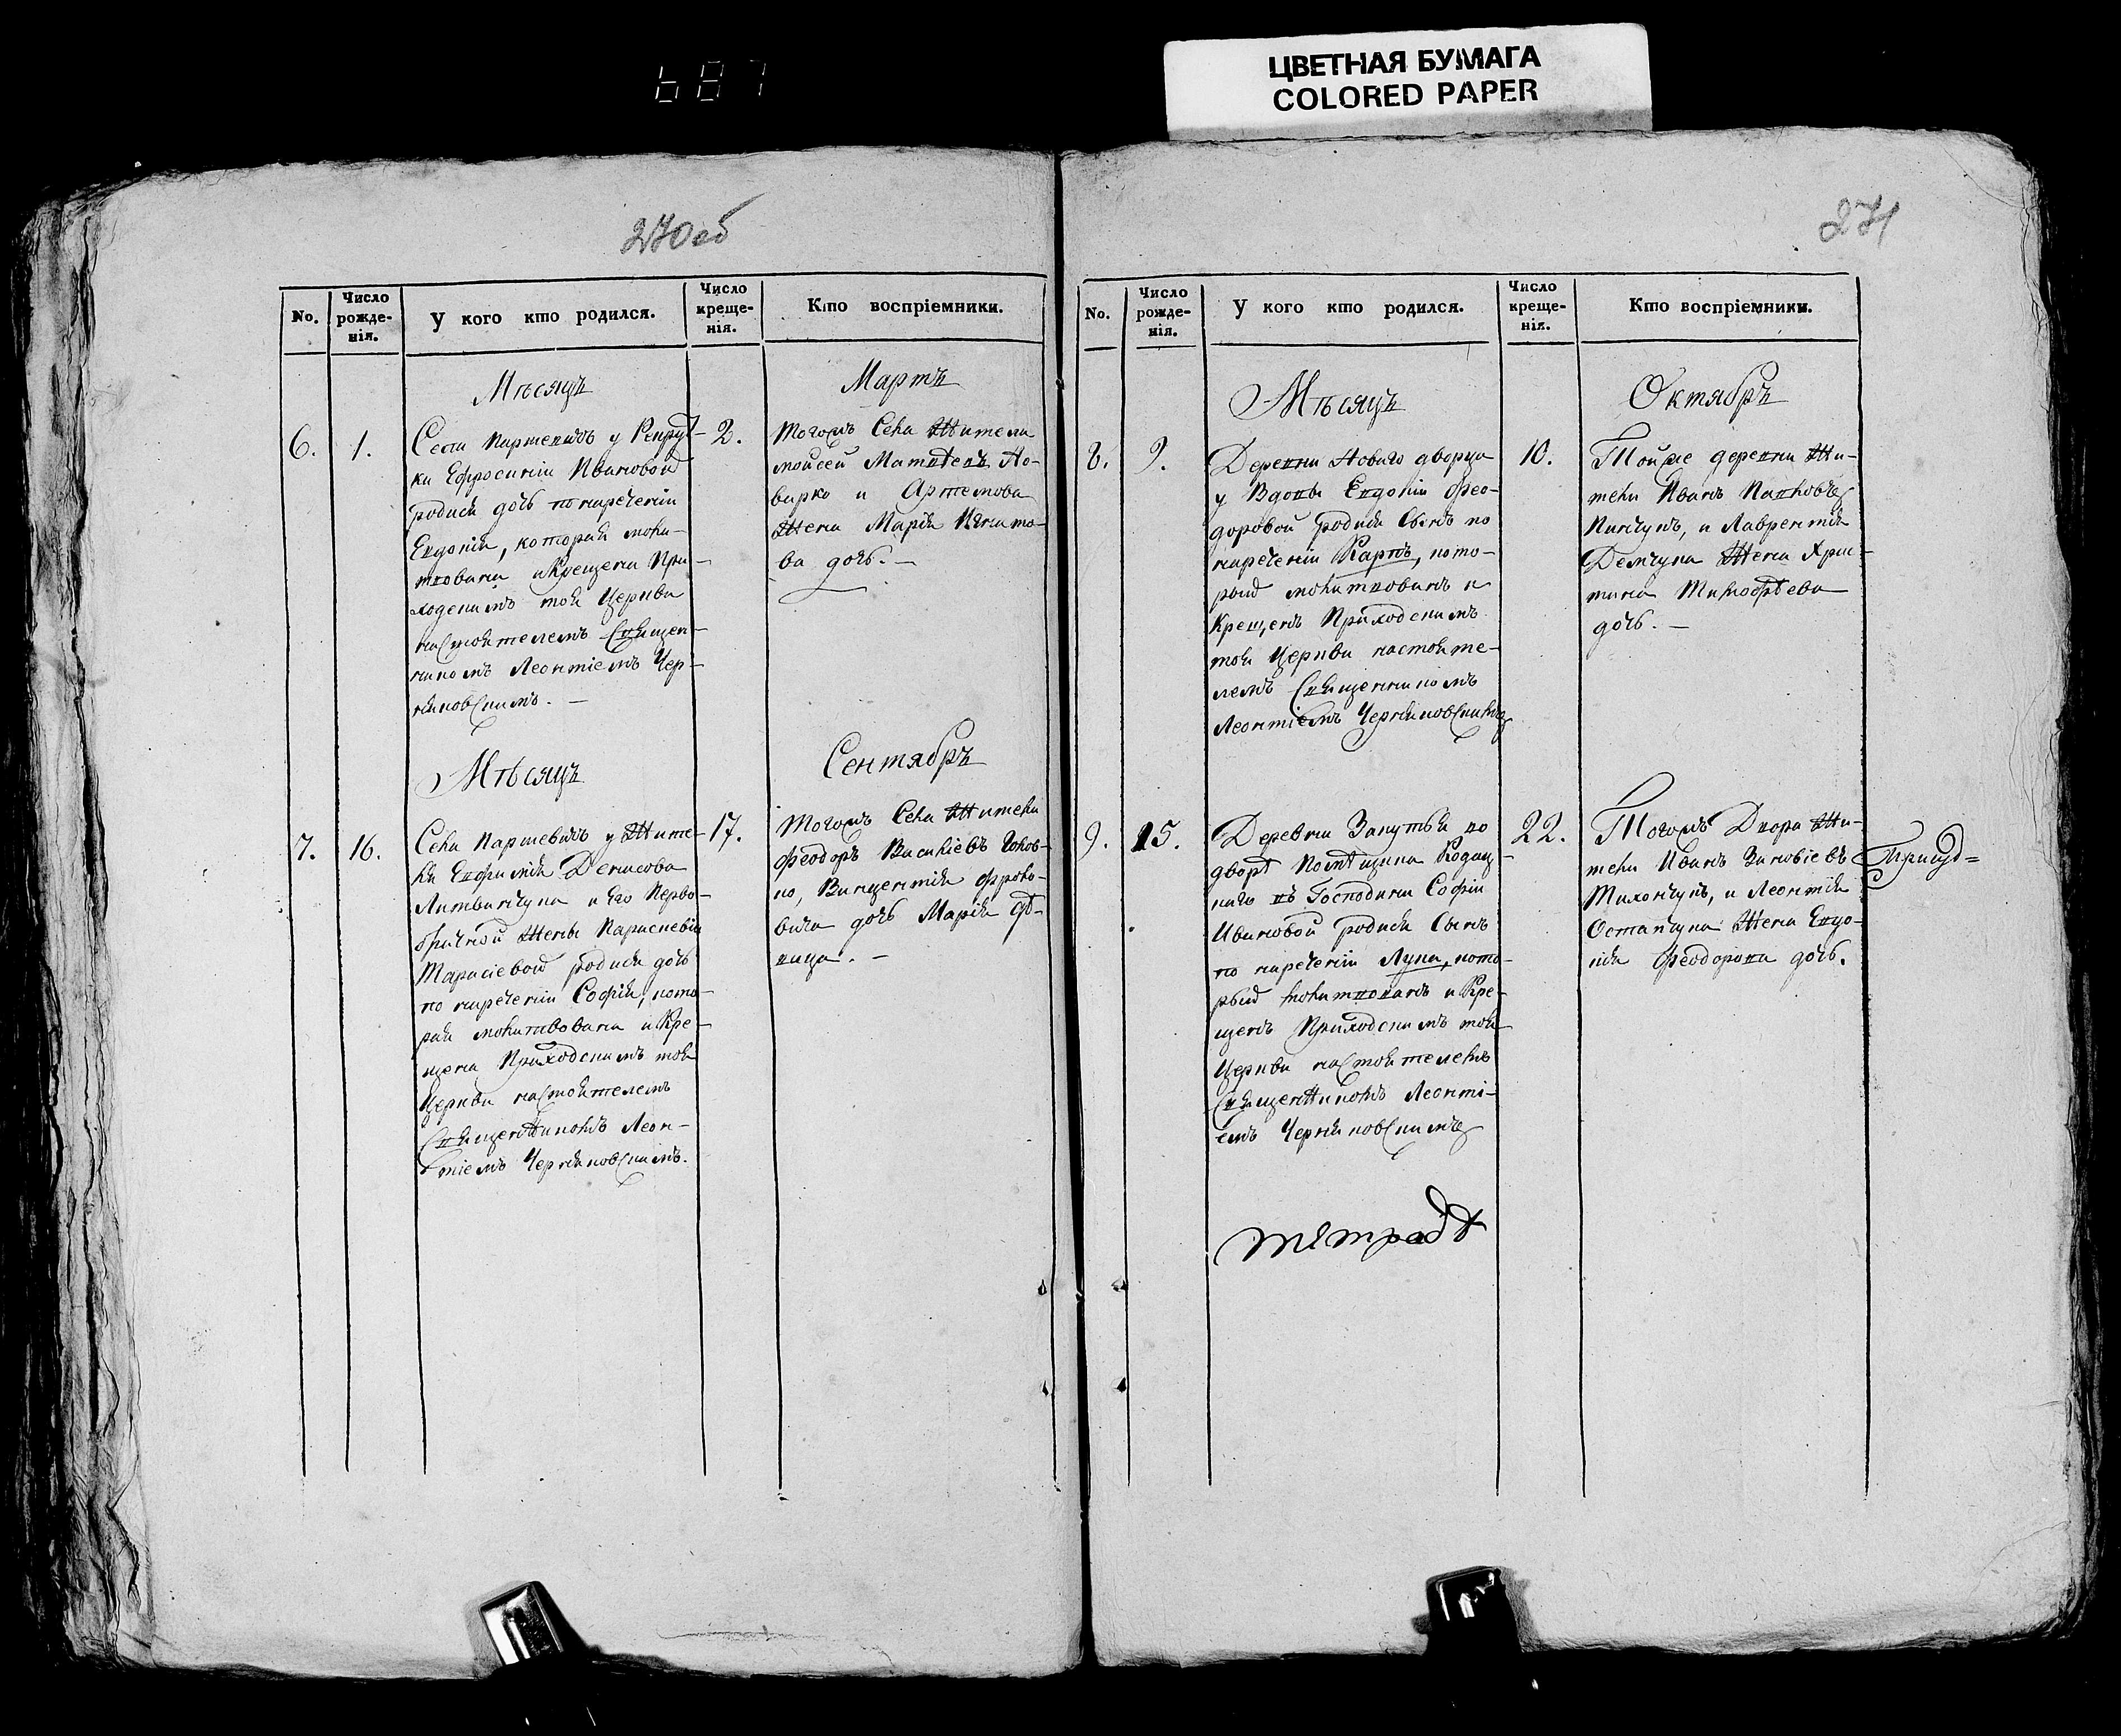 687
ЦВЕТНАЯ БУМАГА
COLORED PAPER
270об
No.
Число рожде- нія.
У кого кто родился.
Число креще- нія.
Кто воспріемники.
Мѣсяцъ
Мартъ
6.
1.
Села Паршевичъ у Рекрут-
ки Ефросиніи Ивановой
родися дочь по нареченіи
Евдокія, которая моли-
твована и Крещена При-
ходскимъ тоя Церкви
настоятелемъ Священ-
никомъ Леонтіемъ Чер-
няковскимъ. —
2.
Тогожъ Села Жители
Мойсей Матвѣевъ
и Артемова
Жена Марія Игнато-
ва дочь. —
Мѣсяцъ
Сентябръ
7.
16.
Села Паршевичъ у Жите-
ля Евфимія Денисова
Литвинчука и Его Перво-
брачной Жены Параскевіи
Тарасіевой родися дочь
по нареченіи Софія, кото-
рая молитвована и Кре-
щена Приходскимъ тоя
Церкви настоятелемъ
Священникомъ Леон-
тіемъ Черняковскимъ.
17.
Тогожъ Села Жители
Феодоръ Василіевъ
Викентія
дочь Марія дѣ-
вица. —
271
No.
Число рожде- нія.
У кого кто родился.
Число креще- нія.
Кто воспріемники.
Мѣсяцъ
Октябрь
8.
9.
Деревни Новаго дворца
у Вдовы Евдокіи Фео-
доровой родися Сынъ по
нареченіи Карпъ, кото-
рый молитвованъ и
Крещенъ Приходскимъ
тоя Церкви настояте-
лемъ Священникомъ
Леонтіемъ Черняковскимъ
10.
Тойже деревни Жи-
тели Иванъ
Пинчукъ, и Лаврентія
Демчука Жена Хрис-
тина Тимофѣева
дочь. —
9.
15.
Деревни Запутья во
дворѣ Помѣщика
въ Господина Софіи
Ивановой родися Сынъ
по нареченіи Лука, кото-
рый молитвованъ и Кре-
щенъ Приходскимъ тоя
Церкви настоятелемъ
Священникомъ Леонті-
емъ Черняковскимъ
22.
Тогожъ Двора Жи-
тели Иванъ Зиновіевъ
Тихончукъ, и Леонтія
Остапчука Жена Евдо-
кія Феодорова дочь.